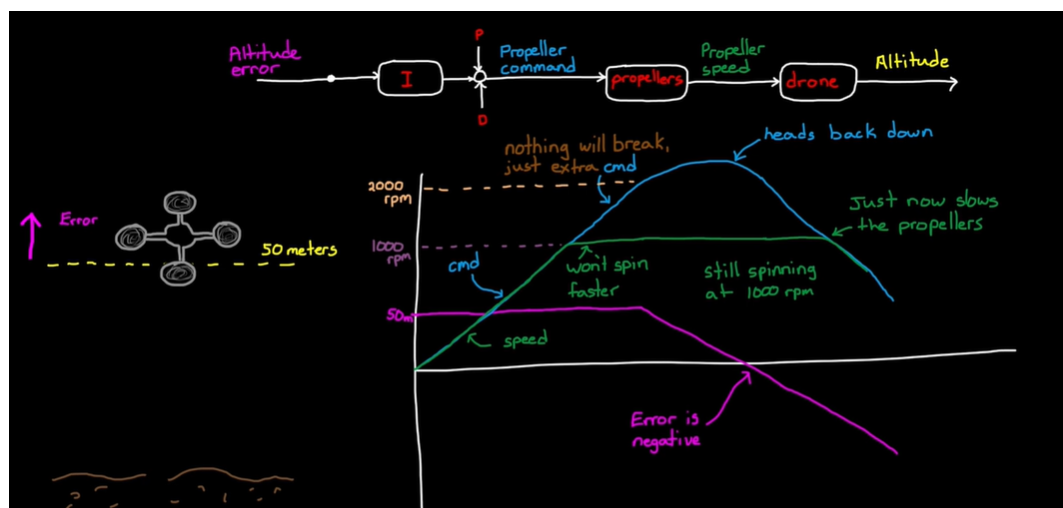 Altitude
error
I
P
D
Propeller
command
propellers
Propeller
speed
drone
Altitude
nothing will break,
just extra cmd
heads back down
2000
rpm
Just now slows
the propellers
Error
50 meters
1000
rpm
cmd
won't spin
faster
still spinning
at 1000 rpm
50m
speed
Error is
negative